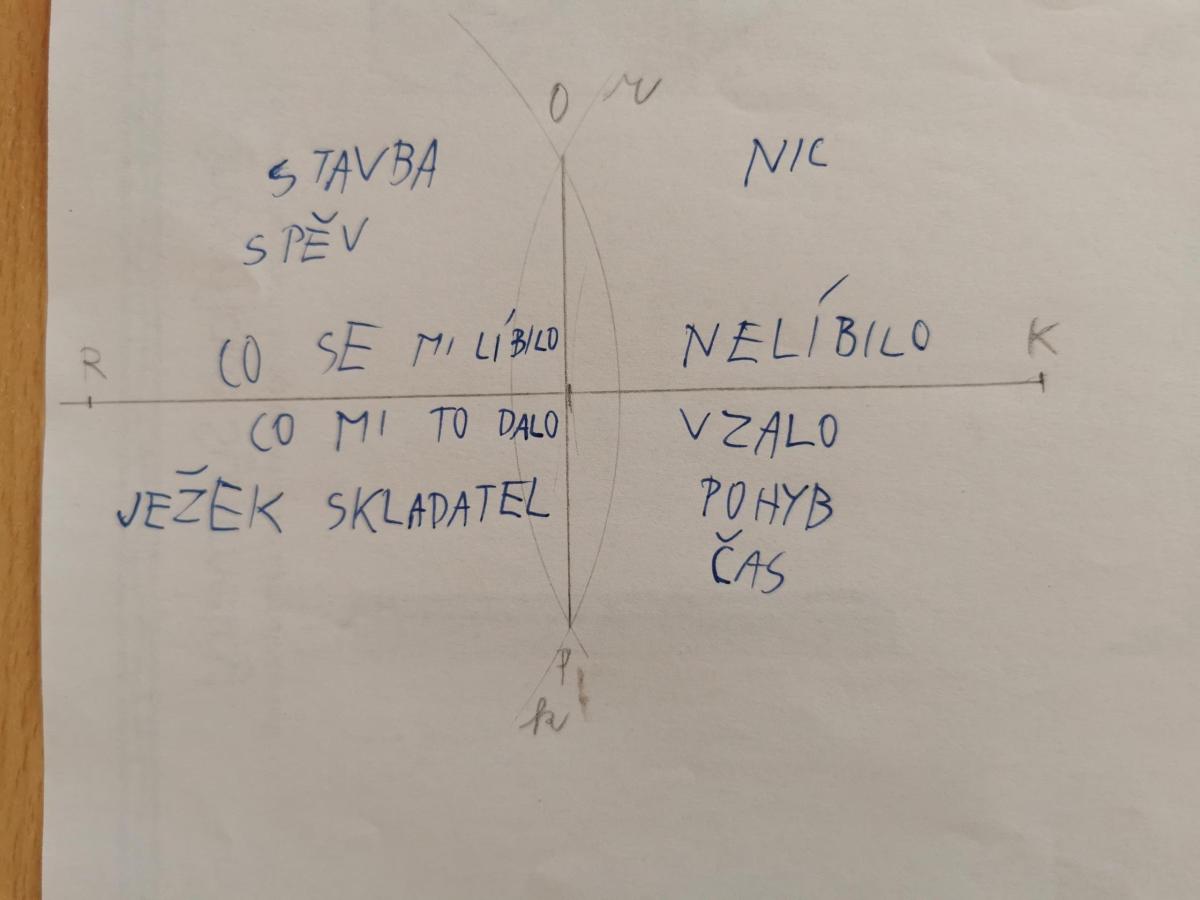 O r
STAVBA NIC
SPĚV
CO SE MI LÍBILO NELÍBILO
R K
CO MI TO DALO VZALO
JEŽEK SKLADATEL POHYB
ČAS
P
k